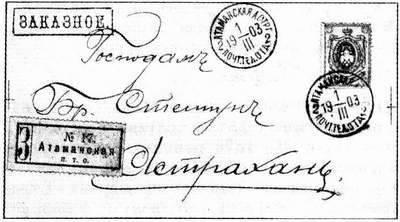 ЗАКАЗНОЕ.
АТАМАНСКАЯ
1
19 03
III
ПОЧТ.ТЕЛ.ОТД.
Господамъ
Бр.
АТАМАНСКАЯ
1
19 03
III
ПОЧТ.ТЕЛ.ОТД.
З
№
Атаманская
п. т. о.
Астрахань